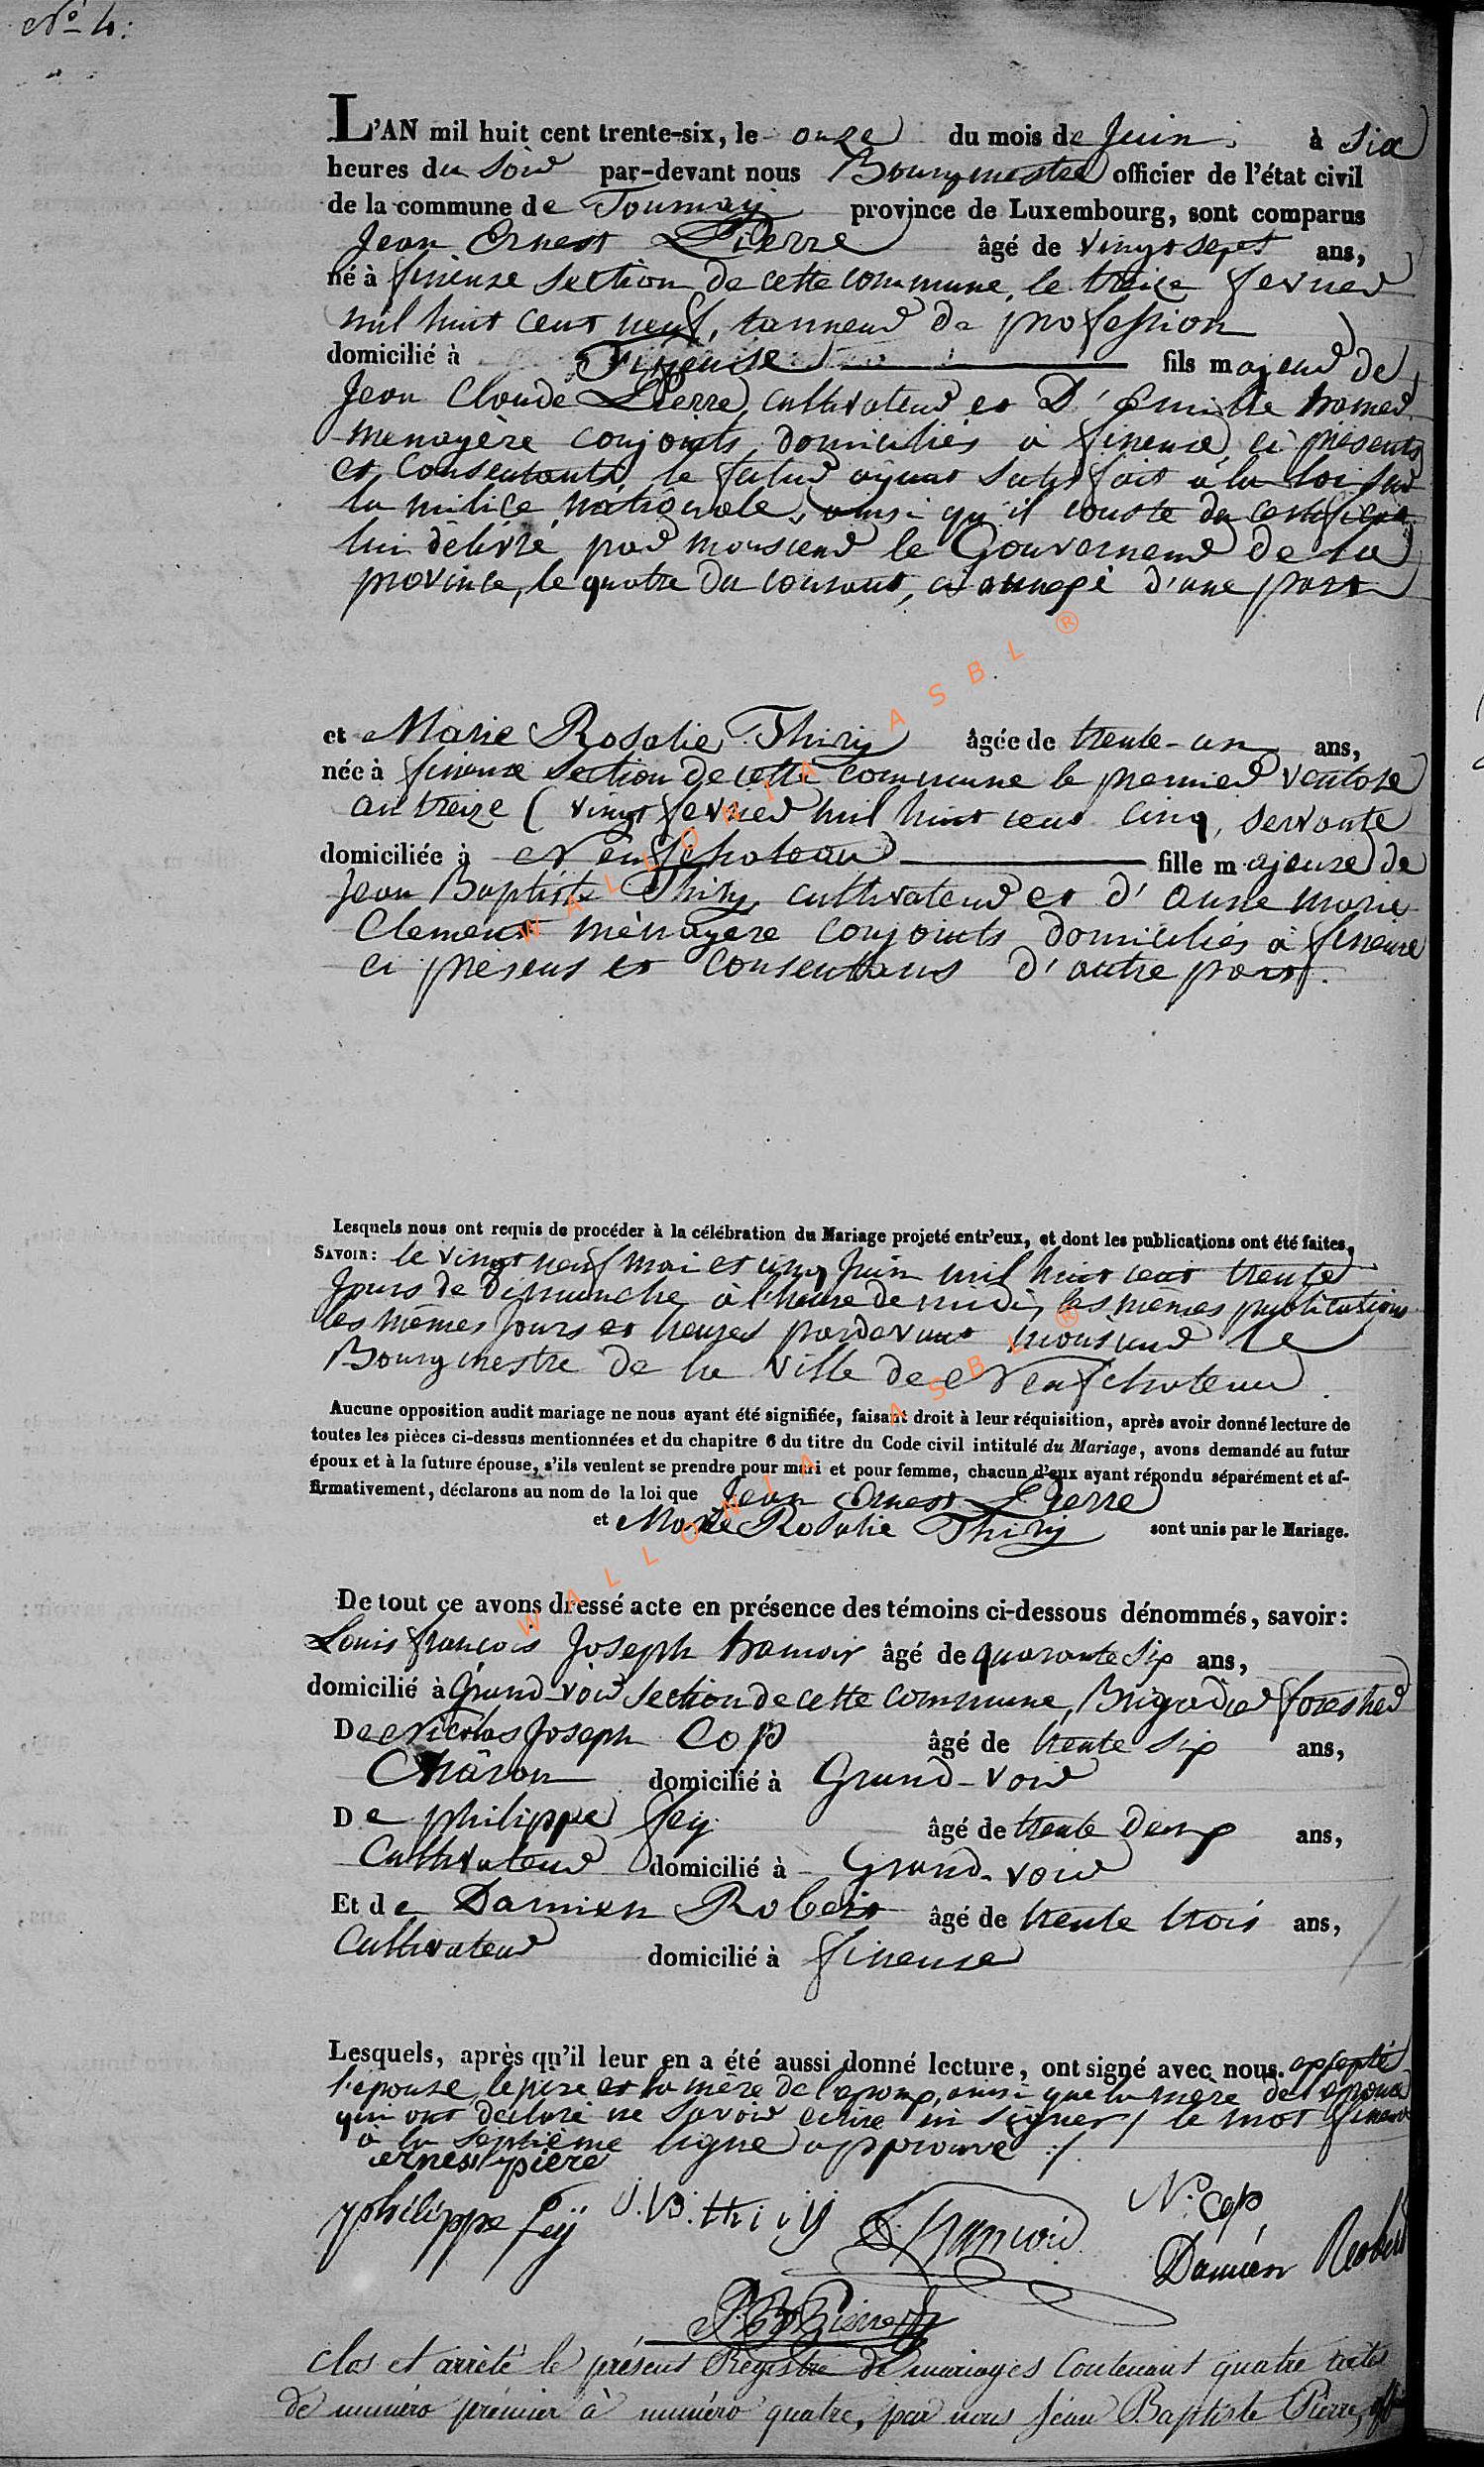 N° 4:
L'AN mil huit cent trente-six, le onze du mois de Juin à six
heures du Soir par-devant nous Bourgmestre officier de l'état civil
de la commune de Tournay province de Luxembourg, sont comparus
Jean Ernest Pierre âgé de vingt sept ans,
né à fineuse Section de cette commune, le treize fevrier
mil huit cent neuf, tanneur de profession
domicilié à Fineuse fils majeur de
Jean Claude Pierre, cultivateur et D'
menagère conjoints domiciliés à fineuse, ci présents
et Consentants, le futur ayant satisfait à la loi sur
la milice nationale, ainsi qu'il conste du certificat
lui délivré par monsieur le Gouverneur de la
province, le quatre du courant, ci annexé d'une part
et Marie Rosalie Thiry âgée de trente-un ans,
née à fineuse section de cette commune le premier ventose
an treize ( vingt fevrier mil huit cent cinq, servante
domiciliée à Neufchateau fille majeure de
Jean Baptiste Thiry cultivateur et d'anne marie
Clement ménagère conjoints domiciliés à fineuse
ci présens et consentans d'autre part.
Lesquels nous ont requis de procéder à la célébration du Mariage projeté entr'eux, et dont les publications ont été faites,
SAVOIR: le vingt neuf mai et cinq Juin mil huit cent trente
Jours de Dimanche à l'heure de midi, les mêmes publications
les mêmes Jours et heures pardevant monsieur le
Bourgmestre de la Ville de Neufchateau.
Aucune opposition audit mariage ne nous ayant été signifiée, faisant droit à leur réquisition, après avoir donné lecture de
toutes les pièces ci-dessus mentionnées et du chapitre 6 du titre du Code civil intitulé du Mariage, avons demandé au futur
époux et à la future épouse, s'ils veulent se prendre pour mari et pour femme, chacun d'eux ayant répondu séparément et af-
firmativement, déclarons au nom de la loi que Jean Ernest Pierre
et Marie Rosalie Thiry sont unis par le Mariage.
De tout ce avons dressé acte en présence des témoins ci-dessous dénommés, savoir:
Louis françois Joseph hanwir âgé de quarante six ans,
domicilié à Grand-voir section de cette commune, Brigadier forestier
De Nicolas Joseph Cop âgé de trente six ans,
Châron domicilié à Grand-voir
De philippe fey âgé de trente deux ans,
Cultivateur domicilié à Grand-voir
Et de Damien Robert âgé de trente trois ans,
Cultivateur domicilié à fineuse
Lesquels, après qu'il leur en a été aussi donné lecture, ont signé avec nous. excepté
l'épouse, le père et la mère de l'epoux, ainsi que la mère de l'epouse
qui ont declaré ne savoir ecrire ni signer / le mot fineuse
à la septième ligne approuvé ./.
ernest piere
philippe feÿ J.B. thiry hanwir N. Cop
Damien Robert
J. B. Pierre
Clos et arrêté le présent Régistre de mariages Contenant quatre actes
de numéro prémier à numéro quatre, par nous Jean Baptiste Pierre,
WALLONIA ASBL ®
WALLONIA ASBL ®